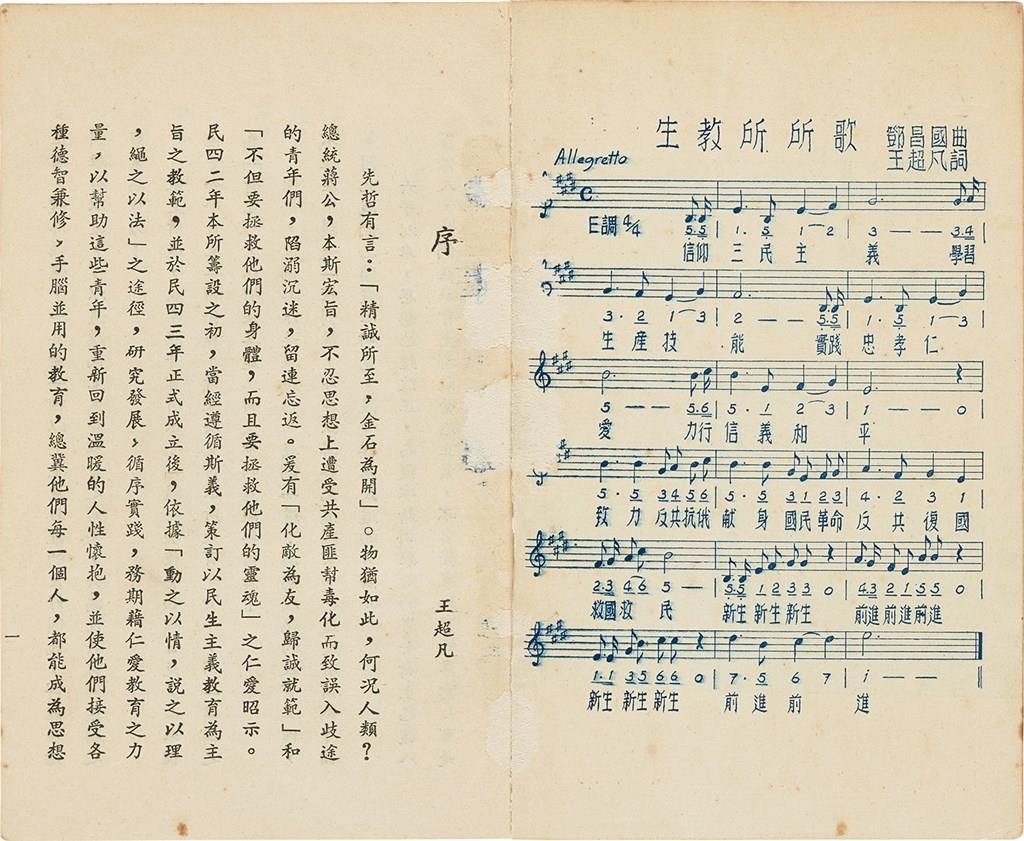 生教所所歌
鄧昌國曲
王超凡詞
Allegretto
E調 4/4 5·5 | 1· 5 1 - 2 | 3 — — 3·4 |
信仰 三民主 義 學習
3· 2 1 - 3 | 2 — — 5·5 | 1· 5 1 - 3 |
生產技 能 實踐 忠孝仁
5 — — 5·6 | 5· 1 2 - 3 | 1 — — 0
愛 力行 信義和 平
5· 5 3 4 5 6 | 5· 5 3 1 2 3 | 4· 2 3 1
致力反共抗俄 献身國民革命 反共復國
2·3 4·6 5 — | 5·5 1 2 3 3 0 | 4·3 2 1 5 5 0 |
救國救民 新生新生新生 前進前進前進
1·1 3 5 6 6 0 | 7· 5 6 7 | i — —
新生新生新生 前進前 進
序
王超凡
先哲有言：「精誠所至，金石為開」。物猶如此，何況人類？
總統蔣公，本斯宏旨，不忍思想上遭受共產匪幫毒化而致誤入歧途
的青年們，陷溺沉迷，留連忘返。爰有「化敵為友，歸誠就範」和
「不但要拯救他們的身體，而且要拯救他們的靈魂」之仁愛昭示。
民四二年本所籌設之初，當經遵循斯義，策訂以民生主義教育為主
旨之教範，並於民四三年正式成立後，依據「動之以情，說之以理
，繩之以法」之途徑，研究發展，循序實踐，務期藉仁愛教育之力
量，以幫助這些青年，重新回到溫暖的人性懷抱，並使他們接受各
種德智兼修，手腦並用的教育，總冀他們每一個人，都能成為思想
一